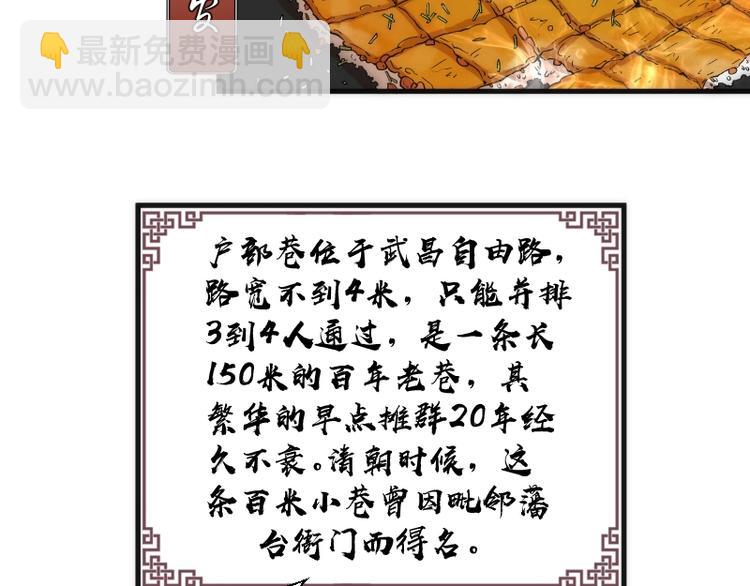 发
最新免费漫画
www.baozimh.com
户部巷位于武昌自由路，
路宽不到4米，只能并排
3到4人通过，是一条长
150米的百年老巷，其
繁华的早点摊群20年经
久不衰。清朝时候，这
条百米小巷曾因毗邻藩
台衙门而得名。